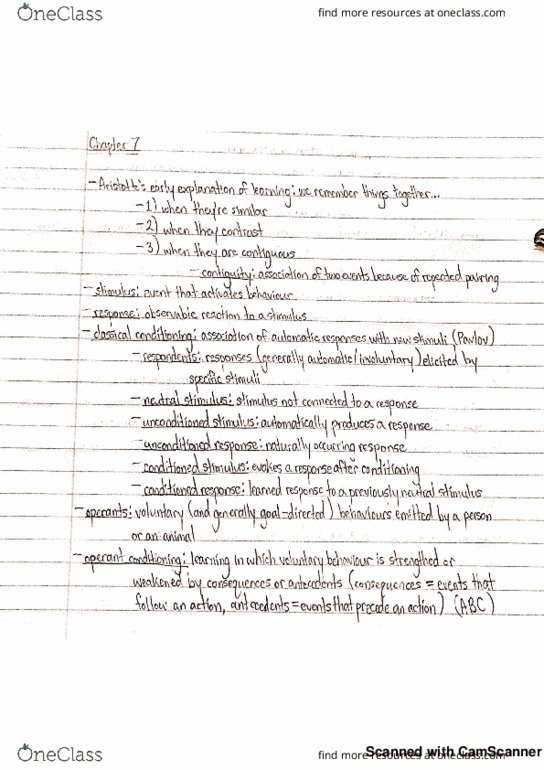 OneClass
find more resources at oneclass.com
Chapter 7
- Aristotle's early explanation of learning: we remember things together...
- 1) when they're similar
- 2) when they contrast
- 3) when they are contiguous
- contiguity: association of two events because of repeated pairing
- stimulus: event that activates behaviour
- response: observable reaction to a stimulus
- classical conditioning: association of automatic responses with new stimuli (Pavlov)
- respondents: responses (generally automatic/involuntary) elicited by
specific stimuli
- neutral stimulus: stimulus not connected to a response
- unconditioned stimulus: automatically produces a response
- unconditioned response: naturally occurring response
- conditioned stimulus: evokes a response after conditioning
- conditioned response: learned response to a previously neutral stimulus
- operants: voluntary (and generally goal-directed) behaviours emitted by a person
or an animal
- operant conditioning: learning in which voluntary behaviour is strengthed or
weakened by consequences or antecedents (consequences = events that
follow an action, antecedents = events that precede an action) (ABC)
OneClass
find more resources at oneclass.com
Scanned with CamScanner